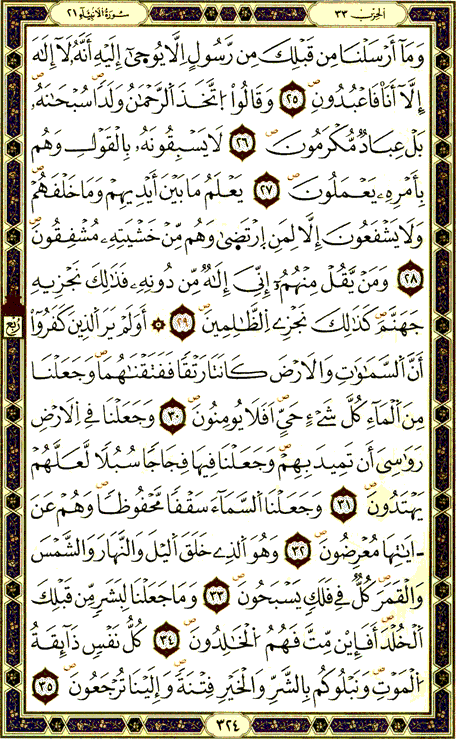 الحِزْبُ ٣٣
سُورَةُ الأَنبِيَاءِ ٢١
وَمَآ أَرْسَلْنَا مِن قَبْلِكَ مِن رَّسُولٍ اِلَّا يُوحَىٰٓ إِلَيْهِ أَنَّهُۥ لَآ إِلَٰهَ
إِلَّآ أَنَا فَاعْبُدُونِۖ ٢٥ وَقَالُواْ اُ۪تَّخَذَ اَ۬لرَّحْمَٰنُ وَلَداٗ سُبْحَٰنَهُۥۖ
بَلْ عِبَادٞ مُّكْرَمُونَۖ ٢٦ لَا يَسْبِقُونَهُۥ بِالْقَوْلِ وَهُم
بِأَمْرِهِۦ يَعْمَلُونَۖ ٢٧ يَعْلَمُ مَا بَيْنَ أَيْدِيهِمْ وَمَا خَلْفَهُمْۖ
وَلَا يَشْفَعُونَ إِلَّا لِمَنِ اِ۪رْتَضَىٰ وَهُم مِّنْ خَشْيَتِهِۦ مُشْفِقُونَۖ
٢٨ وَمَنْ يَّقُلْ مِنْهُمُۥٓ إِنِّيَ إِلَٰهٞ مِّن دُونِهِۦ فَذَٰلِكَ نَجْزِيهِ
جَهَنَّمَۖ كَذَٰلِكَ نَجْزِے اِ۬لظَّٰلِمِينَۖ ٢٩ ۞ أَوَلَمْ يَرَ اَ۬لذِينَ كَفَرُوٓاْ
أَنَّ اَ۬لسَّمَٰوَٰتِ وَالَارْضَ كَانَتَا رَتْقاٗ فَفَتَقْنَٰهُمَاۖ وَجَعَلْنَا
مِنَ اَ۬لْمَآءِ كُلَّ شَےْءٍ حَيٍّۖ اَفَلَا يُومِنُونَۖ ٣٠ وَجَعَلْنَا فِے اِ۬لَارْضِ
رَوَٰسِيَ أَن تَمِيدَ بِهِمْۖ وَجَعَلْنَا فِيهَا فِجَاجاٗ سُبُلاٗ لَّعَلَّهُمْ
يَهْتَدُونَۖ ٣١ وَجَعَلْنَا اَ۬لسَّمَآءَ سَقْفاٗ مَّحْفُوظاٗۖ وَهُمْ عَنَ
اٰيَٰتِهَا مُعْرِضُونَۖ ٣٢ وَهُوَ اَ۬لذِے خَلَقَ اَ۬ليْلَ وَالنَّهَارَ وَالشَّمْسَ
وَالْقَمَرَۖ كُلّٞ فِے فَلَكٖ يَسْبَحُونَۖ ٣٣ وَمَا جَعَلْنَا لِبَشَرٖ مِّن قَبْلِكَ
اَ۬لْخُلْدَۖ أَفَإِيْن مِّتَّ فَهُمُ اُ۬لْخَٰلِدُونَۖ ٣٤ كُلُّ نَفْسٖ ذَآئِقَةُ
اُ۬لْمَوْتِۖ وَنَبْلُوكُم بِالشَّرِّ وَالْخَيْرِ فِتْنَةٗۖ وَإِلَيْنَا تُرْجَعُونَۖ ٣٥
رُبُع
٣٢٤